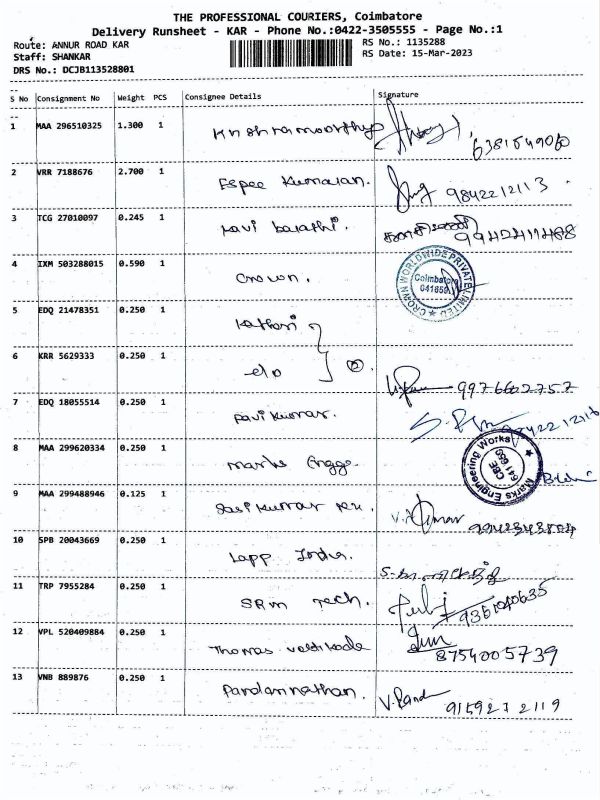 THE PROFESSIONAL COURIERS, Coimbatore
Delivery Runsheet - KAR - Phone No.:0422-3505555 - Page No.:1
Route: ANNUR ROAD KAR RS No.: 1135288
Staff: SHANKAR RS Date: 15-Mar-2023
DRS No.: DCJB113528801
S No Consignment No Weight PCS Consignee Details Signature
1 MAA 296510325 1.300 1 Krishnamoorthy
2 VRR 7188676 2.700 1 Espee Kumaran. 9842212113
3 TCG 27010097 0.245 1 Ravi barathi.
4 IXM 503288015 0.590 1 Crown. CROWN WORLDWIDE PRIVATE LIMITED Coimbatore 641659
5 EDQ 21478351 0.250 1 Kathari
6 KRR 5629333 0.250 1 do 2 9976602757
7 EDQ 18055514 0.250 1 Pavikumar.
8 MAA 299620334 0.250 1 Marks Enggs. Marks Engineering Works CBE 641 659
9 MAA 299488946 0.125 1 Sasikumar
10 SPB 20043669 0.250 1 Lapp India.
11 TRP 7955284 0.250 1 SRM Tech.
12 VPL 520409884 0.250 1 Thomas 8754005739
13 VNB 889876 0.250 1 9159272119